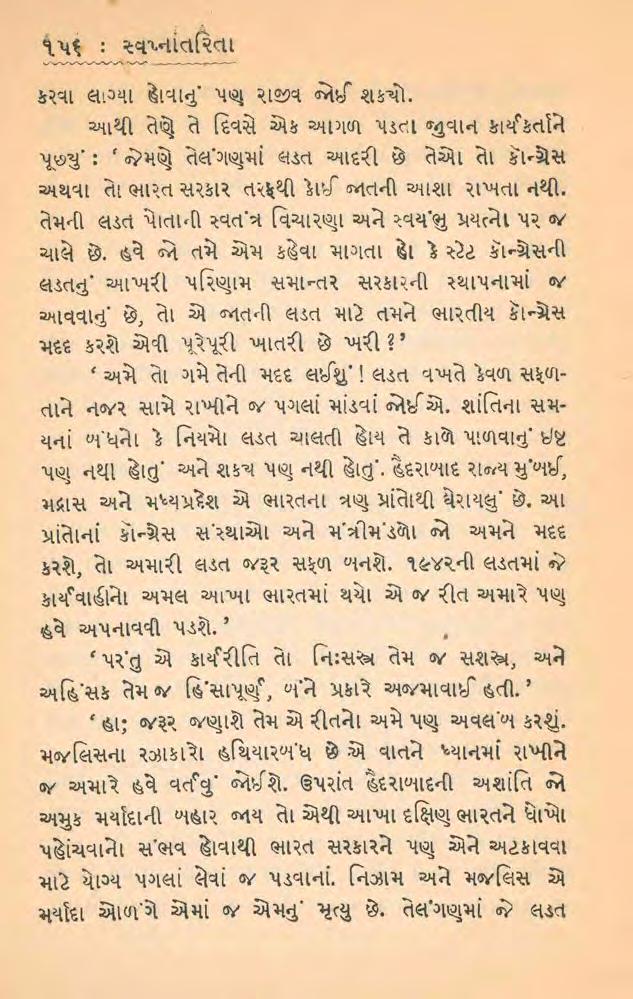 ૧૫૬ : સ્વપ્નાંતરિતા
કરવા લાગ્યા હોવાનું પણ રાજીવ જોઈ શકયો.
આથી તેણે તે દિવસે એક આગળ પડતા જુવાન કાર્યકર્તાને
પૂછ્યું : ‘ જેમણે તેલંગણમાં લડત આદરી છે તેઓ તો કૉન્ગ્રેસ
અથવા તો ભારત સરકાર તરફથી કોઈ જાતની આશા રાખતા નથી.
તેમની લડત પોતાની સ્વતંત્ર વિચારણા અને સ્વયંભુ પ્રયત્નો પર જ
ચાલે છે. હવે જો તમે એમ કહેવા માગતા હો કે સ્ટેટ કૉન્ગ્રેસની
લડતનું આખરી પરિણામ સમાન્તર સરકારની સ્થાપનામાં જ
આવવાનું છે, તો એ જાતની લડત માટે તમને ભારતીય કૉન્ગ્રેસ
મદદ કરશે એવી પૂરેપૂરી ખાતરી છે ખરી ? ’
‘ અમે તો ગમે તેની મદદ લઈશું ! લડત વખતે કેવળ સફળ-
તાને નજર સામે રાખીને જ પગલાં માંડવાં જોઈએ. શાંતિના સમ-
યનાં બંધનો કે નિયમો લડત ચાલતી હોય તે કાળે પાળવાનું ઇષ્ટ
પણ નથી હોતું અને શકય પણ નથી હોતું. હૈદરાબાદ રાજ્ય મુંબઈ,
મદ્રાસ અને મધ્યપ્રદેશ એ ભારતના ત્રણ પ્રાંતોથી ઘેરાયલું છે. આ
પ્રાંતોનાં કૉન્ગ્રેસ સંસ્થાઓ અને મંત્રીમંડળો જો અમને મદદ
કરશે, તો અમારી લડત જરૂર સફળ બનશે. ૧૯૪૨ની લડતમાં જે
કાર્યવાહીનો અમલ આખા ભારતમાં થયો એ જ રીત અમારે પણ
હવે અપનાવવી પડશે. ’
‘ પરંતુ એ કાર્યરીતિ તો નિઃસસ્ત્ર તેમ જ સશસ્ત્ર, અને
અહિંસક તેમ જ હિંસાપૂર્ણ, બંને પ્રકારે અજમાવાઈ હતી. ’
‘ હા; જરૂર જણાશે તેમ એ રીતનો અમે પણ અવલંબ કરશું.
મજલિસના રઝાકારો હથિયારબંધ છે એ વાતને ધ્યાનમાં રાખીને
જ અમારે હવે વર્તવું જોઈશે. ઉપરાંત હૈદરાબાદની અશાંતિ જો
અમુક મર્યાદાની બહાર જાય તો એથી આખા દક્ષિણ ભારતને ધોખો
પહોંચવાનો સંભવ હોવાથી ભારત સરકારને પણ એને અટકાવવા
માટે યોગ્ય પગલાં લેવાં જ પડવાનાં. નિઝામ અને મજલિસ એ
મર્યાદા ઓળંગે એમાં જ એમનું મૃત્યુ છે. તેલંગણમાં જે લડત